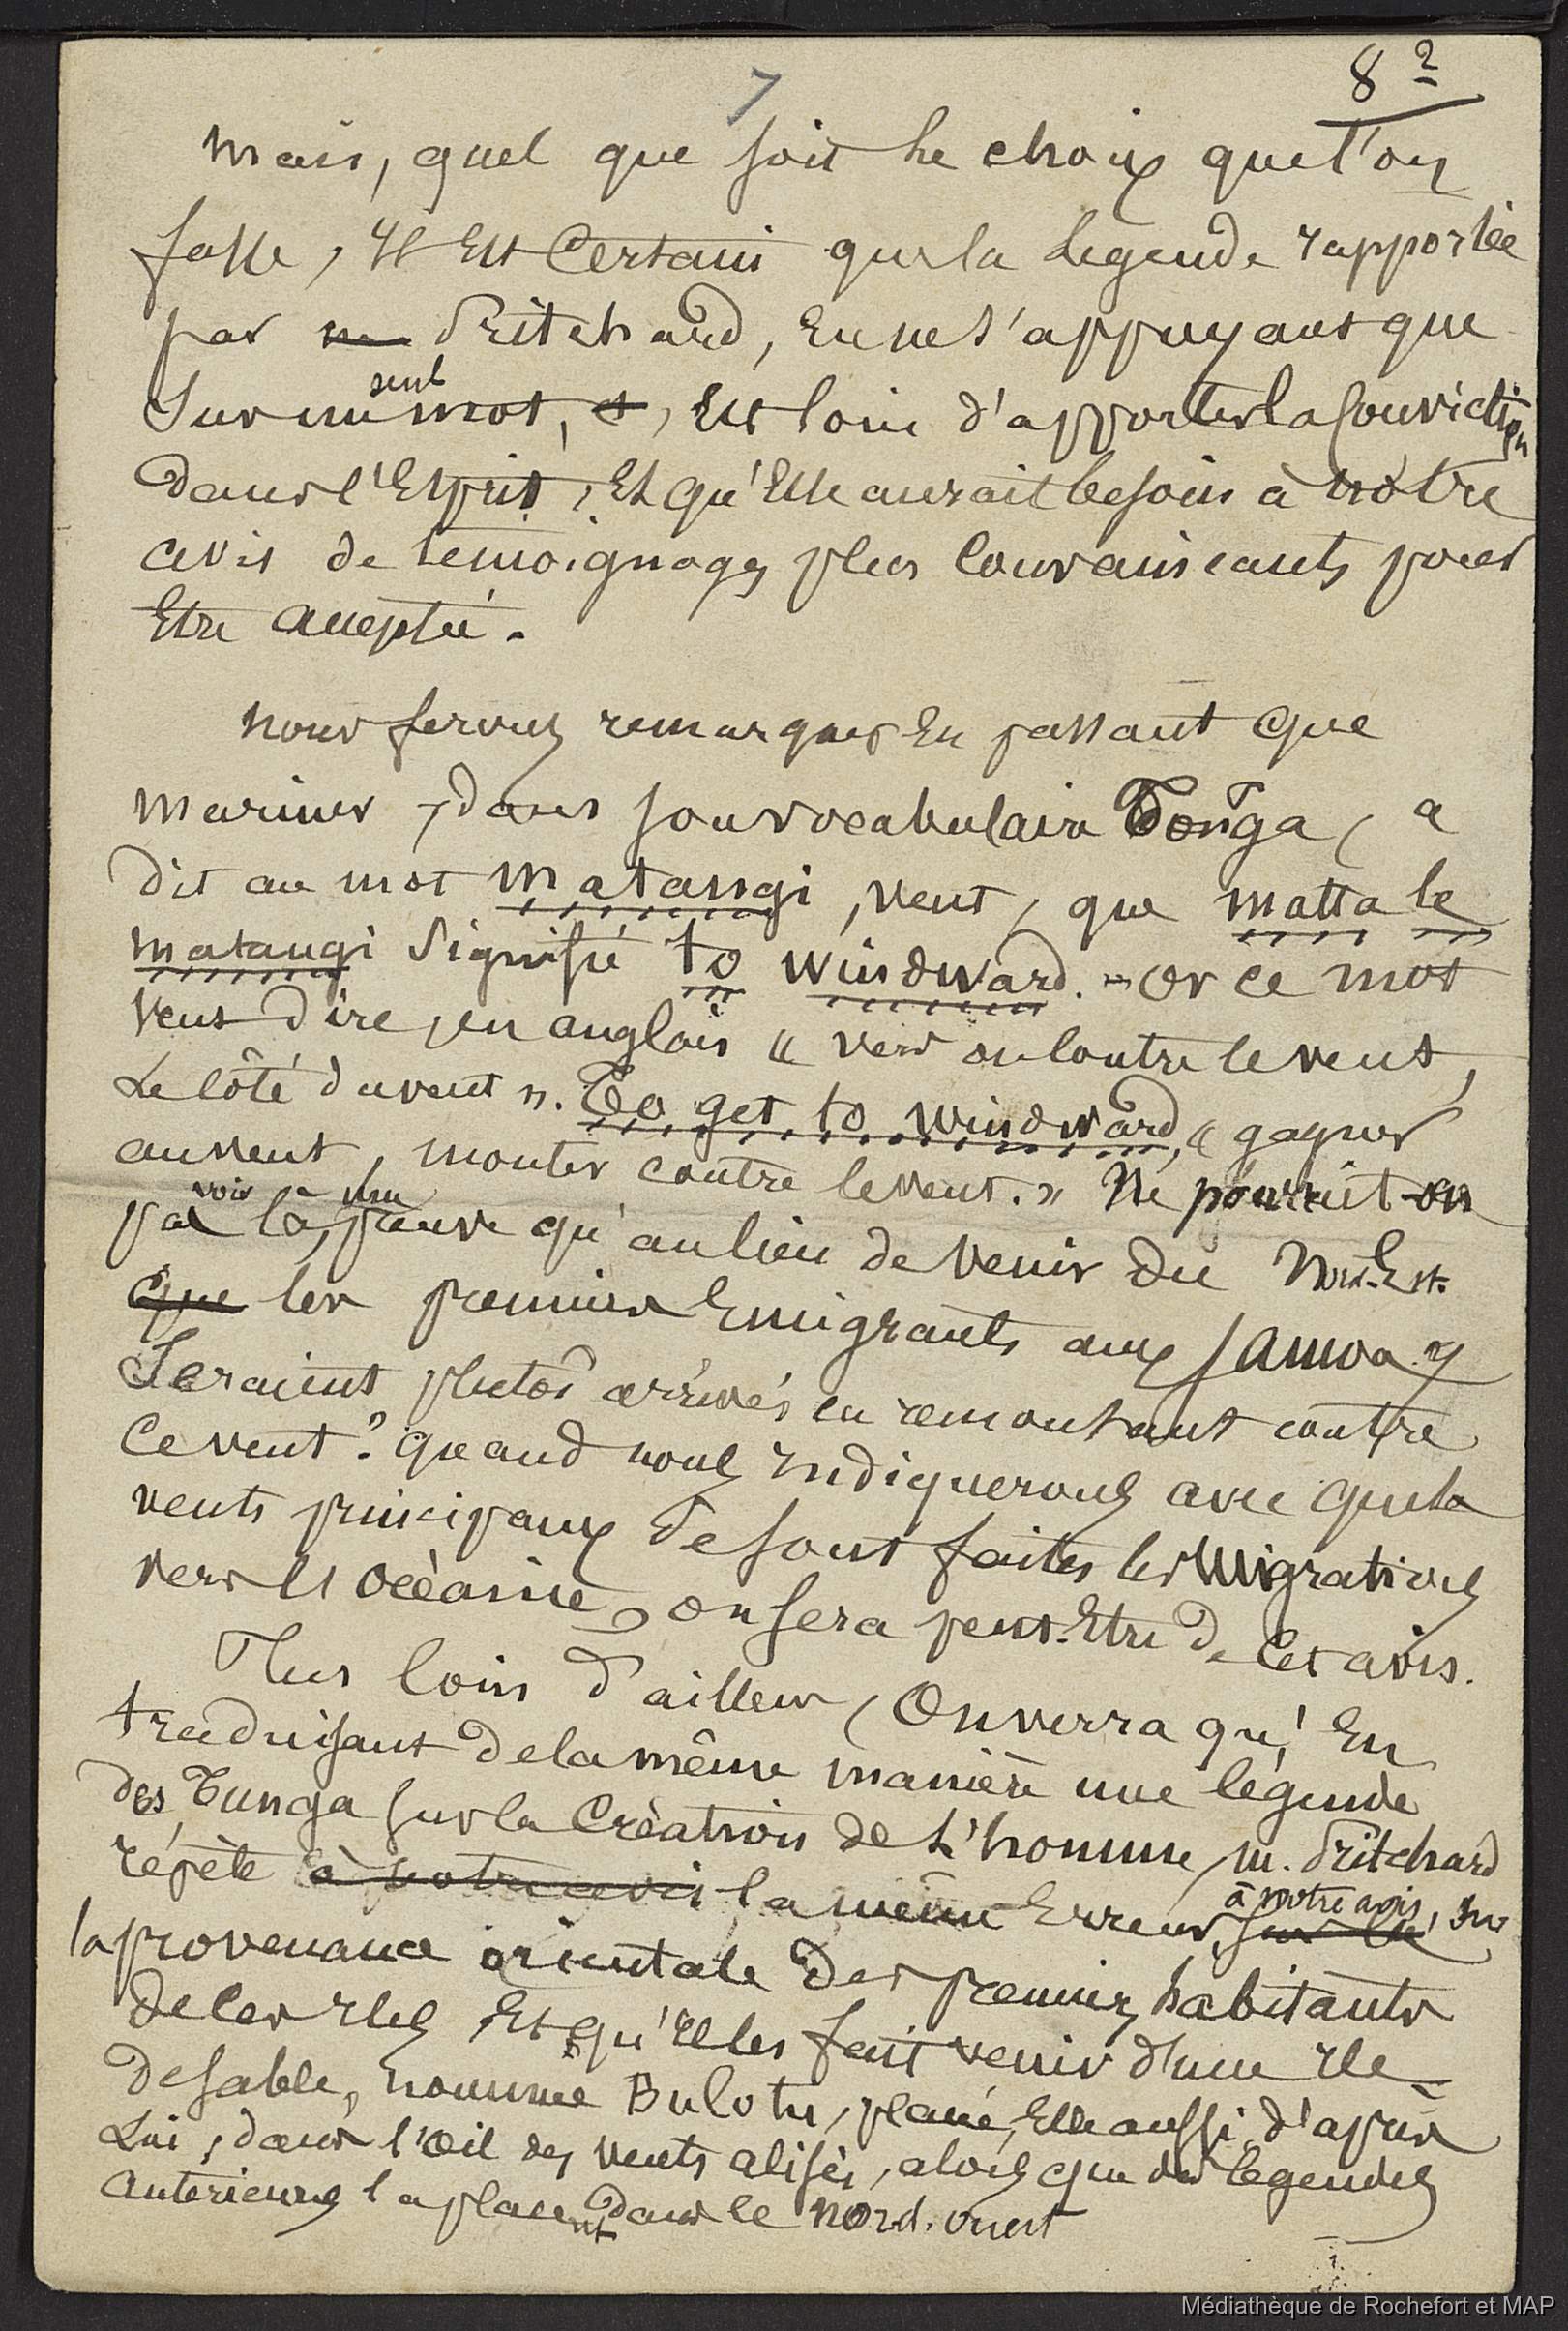 7
8 2
Mais, quel que soit le choix que l'on
fasse, il est certain que la légende rapportée
par Pritchard, en ne s'appuyant que
sur un seul mot, est loin d'apporter la conviction
dans l'Esprit, et qu'Elle aurait besoin à notre
avis de témoignages plus convaincants pour
Etre acceptée.
Nous ferons remarquer En passant que
Mariner, dans son vocabulaire Tonga, a
dit au mot Matangi, vent, que matta le
matangi signifie to windward. - Or ce mot
veut dire, en anglais « vers ou contre le vent,
Le côté du vent ». To get to windward, « gagner
au vent, monter contre le vent. » Ne pourrait-on
pas voir là, une preuve qu'au lieu de venir du Nord-Est
que les premiers Emigrants aux Samoa y
Seraient plutôt arrivés en remontant contre
Ce vent ? Quand nous indiquerons avec quels
vents principaux se sont faites les Migrations
vers l'Océanie, on sera peut-Etre de cet avis.
Plus loin d'ailleurs, On verra qu'En
traduisant de la même manière une légende
des Tunga sur la Création de L'homme, M. Pritchard
répète à notre avis la même Erreur, à notre avis, sur
la provenance orientale des premiers habitants
de ces Iles, Et qu'Il les fait venir d'une Ile
de sable, nommée Bulotu, placée, Elle aussi, d'après
Lui, dans l'œil des vents alisés, alors que des légendes
antérieures la placent dans le Nord-ouest
Médiathèque de Rochefort et MAP